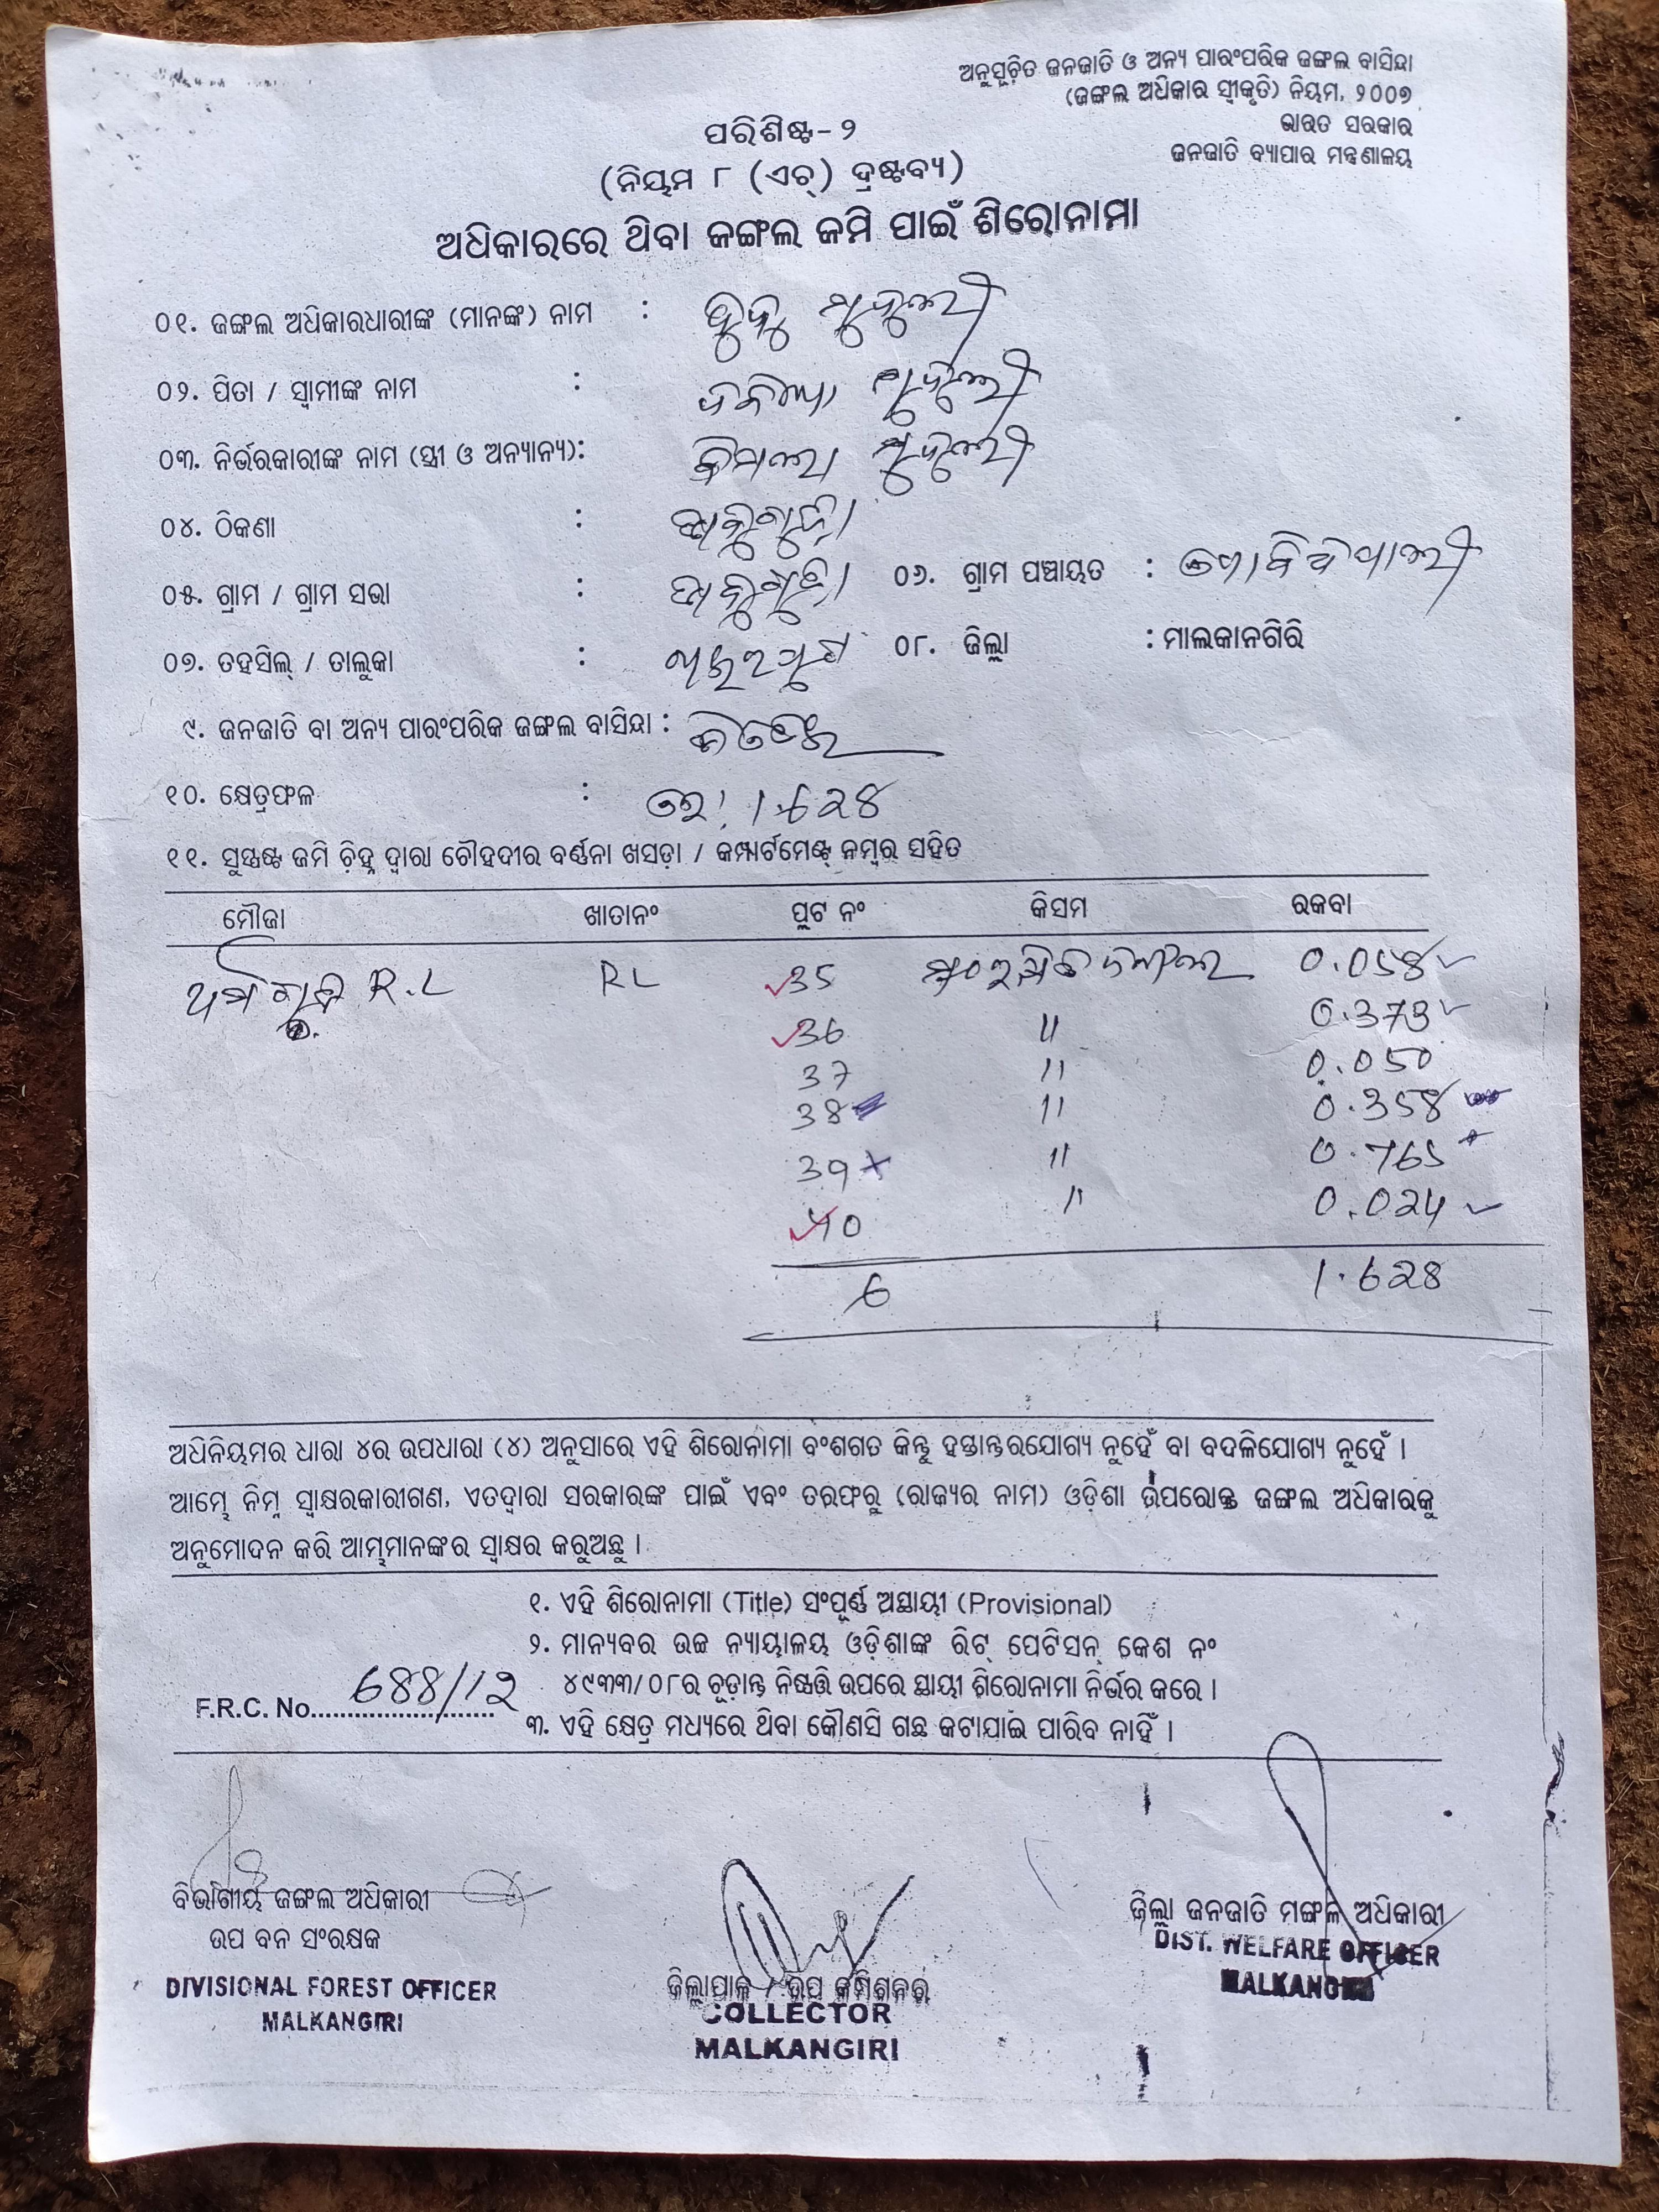 ଅନୁସୂଚିତ ଜନଜାତି ଓ ଅନ୍ୟ ପାରଂପରିକ ଜଙ୍ଗଲ ବାସିନ୍ଦା
(ଜଙ୍ଗଲ ଅଧିକାର ସ୍ୱୀକୃତି) ନିୟମ, ୨୦୦୭
ଭାରତ ସରକାର
ଜନଜାତି ବ୍ୟାପାର ମନ୍ତ୍ରଣାଳୟ
ପରିଶିଷ୍ଟ-୨
(ନିୟମ ୮ (ଏଚ୍) ଦ୍ରଷ୍ଟବ୍ୟ)
ଅଧିକାରରେ ଥିବା ଜଙ୍ଗଲ ଜମି ପାଇଁ ଶିରୋନାମା
୦୧. ଜଙ୍ଗଲ ଅଧିକାରଧାରୀଙ୍କ (ମାନଙ୍କ) ନାମ : ମୁଦୁଲୀ
୦୨. ପିତା / ସ୍ୱାମୀଙ୍କ ନାମ : ମୁଦୁଲୀ
୦୩. ନିର୍ଭରକାରୀଙ୍କ ନାମ (ସ୍ତ୍ରୀ ଓ ଅନ୍ୟାନ୍ୟ): ମୁଦୁଲୀ
୦୪. ଠିକଣା :
୦୫. ଗ୍ରାମ / ଗ୍ରାମ ସଭା : ୦୬. ଗ୍ରାମ ପଞ୍ଚାୟତ :
୦୭. ତହସିଲ୍ / ତାଲୁକା : ୦୮. ଜିଲ୍ଲା : ମାଲକାନଗିରି
୯. ଜନଜାତି ବା ଅନ୍ୟ ପାରଂପରିକ ଜଙ୍ଗଲ ବାସିନ୍ଦା :
୧୦. କ୍ଷେତ୍ରଫଳ : 1.628
୧୧. ସୁସ୍ପଷ୍ଟ ଜମି ଚିହ୍ନ ଦ୍ୱାରା ଚୌହଦୀର ବର୍ଣ୍ଣନା ଖସଡ଼ା / କମ୍ପାର୍ଟମେଣ୍ଟ୍ ନମ୍ବର ସହିତ
ମୌଜା ଖାତାନଂ ପ୍ଲଟ ନଂ କିସମ ରକବା
R.L RL 35 0.058
36 " 0.373
37 " 0.050
38 " 0.358
39 " 0.765
40 " 0.024
6 1.628
ଅଧିନିୟମର ଧାରା ୪ର ଉପଧାରା (୪) ଅନୁସାରେ ଏହି ଶିରୋନାମା ବଂଶଗତ କିନ୍ତୁ ହସ୍ତାନ୍ତରଯୋଗ୍ୟ ନୁହେଁ ବା ବଦଳିଯୋଗ୍ୟ ନୁହେଁ ।
ଆମ୍ଭେ ନିମ୍ନ ସ୍ୱାକ୍ଷରକାରୀଗଣ, ଏତଦ୍ୱାରା ସରକାରଙ୍କ ପାଇଁ ଏବଂ ତରଫରୁ (ରାଜ୍ୟର ନାମ) ଓଡ଼ିଶା ଉପରୋକ୍ତ ଜଙ୍ଗଲ ଅଧିକାରକୁ
ଅନୁମୋଦନ କରି ଆମ୍ଭମାନଙ୍କର ସ୍ୱାକ୍ଷର କରୁଅଛୁ ।
୧. ଏହି ଶିରୋନାମା (Title) ସଂପୂର୍ଣ୍ଣ ଅସ୍ଥାୟୀ (Provisional)
୨. ମାନ୍ୟବର ଉଚ୍ଚ ନ୍ୟାୟାଳୟ ଓଡ଼ିଶାଙ୍କ ରିଟ୍ ପେଟିସନ୍ କେଶ ନଂ
୪୯୩୩/୦୮ର ଚୂଡ଼ାନ୍ତ ନିଷ୍ପତ୍ତି ଉପରେ ସ୍ଥାୟୀ ଶିରୋନାମା ନିର୍ଭର କରେ ।
F.R.C. No. 688/12
୩. ଏହି କ୍ଷେତ୍ର ମଧ୍ୟରେ ଥିବା କୌଣସି ଗଛ କଟାଯାଇ ପାରିବ ନାହିଁ ।
ବିଭାଗୀୟ ଜଙ୍ଗଲ ଅଧିକାରୀ
ଉପ ବନ ସଂରକ୍ଷକ
DIVISIONAL FOREST OFFICER
MALKANGIRI
ଜିଲ୍ଲାପାଳ / ଉପ କମିଶନର
COLLECTOR
MALKANGIRI
ଜିଲ୍ଲା ଜନଜାତି ମଙ୍ଗଳ ଅଧିକାରୀ
DIST. WELFARE OFFICER
MALKANGIRI